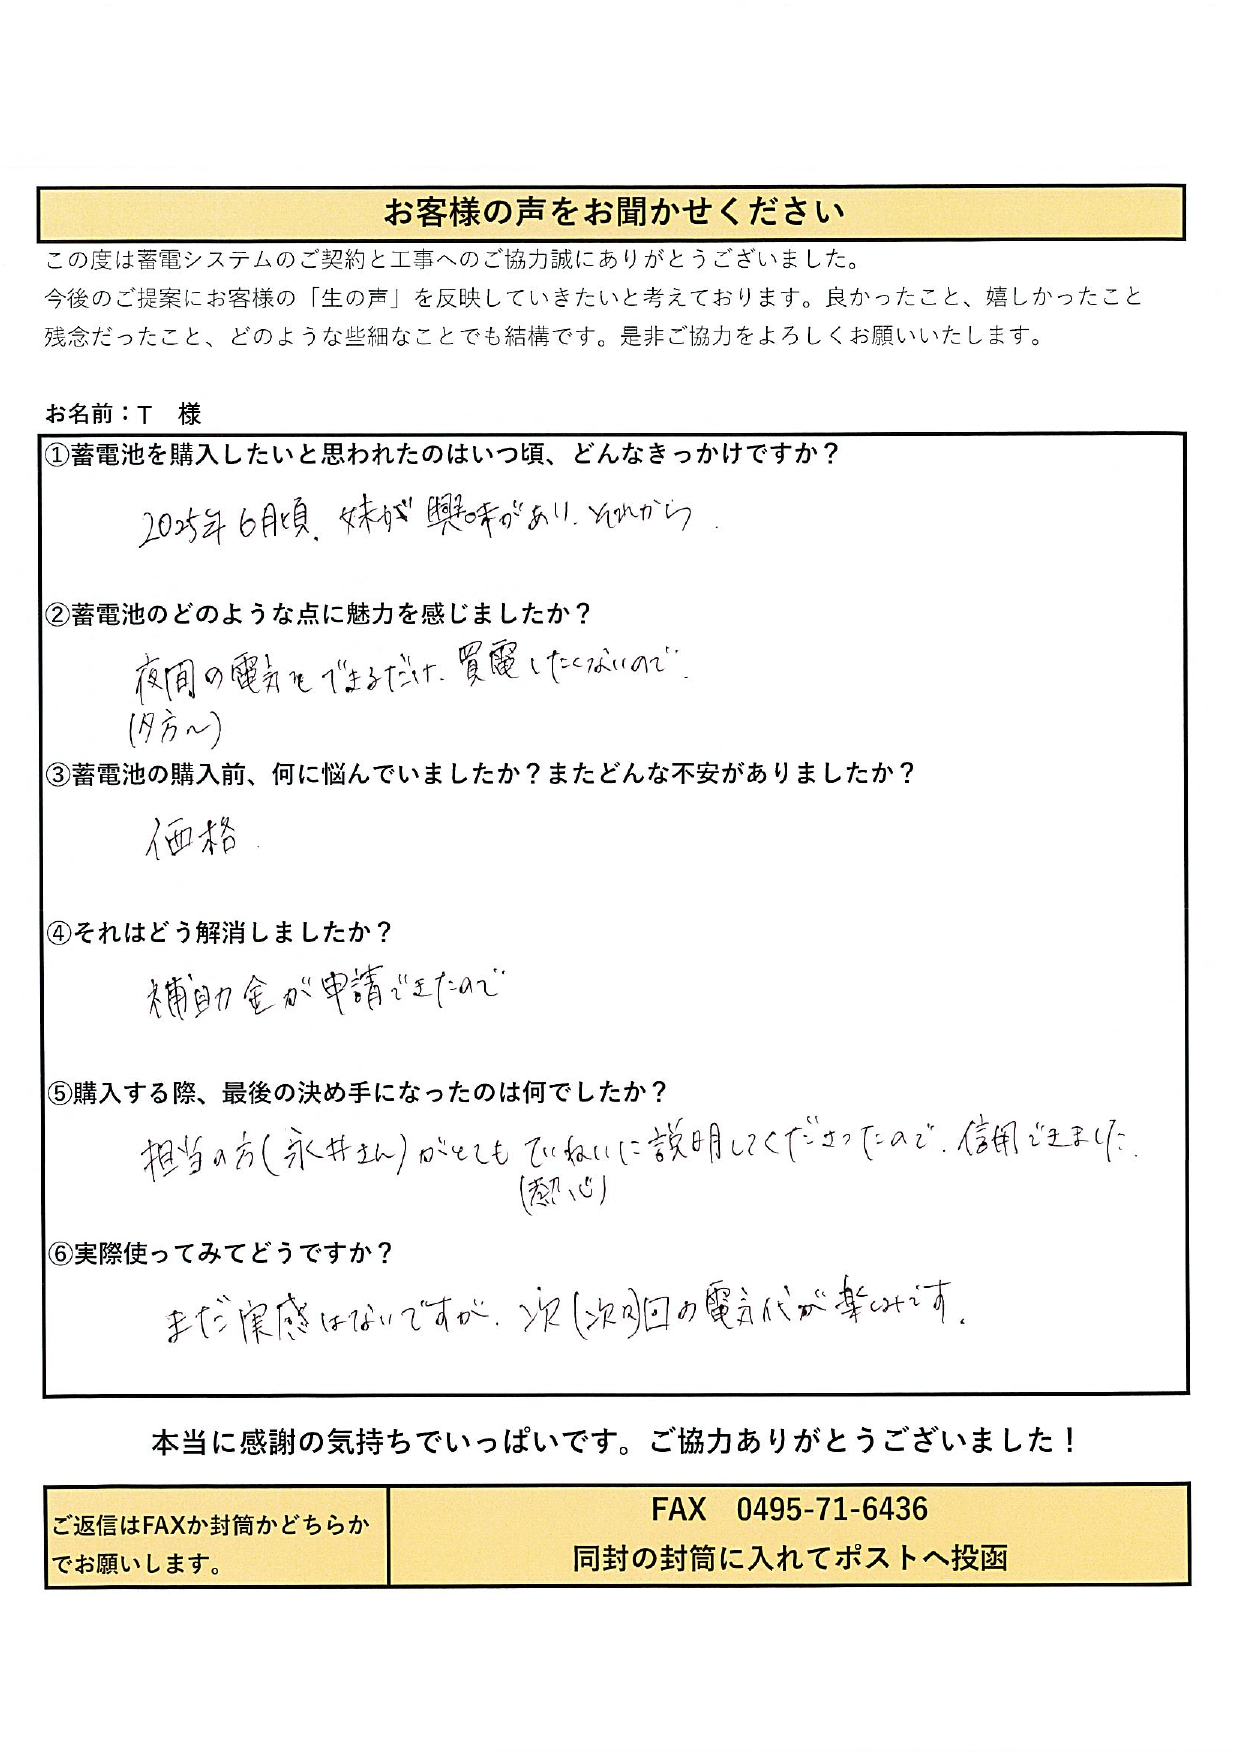 お客様の声をお聞かせください
この度は蓄電システムのご契約と工事へのご協力誠にありがとうございました。
今後のご提案にお客様の「生の声」を反映していきたいと考えております。良かったこと、嬉しかったこと
残念だったこと、どのような些細なことでも結構です。是非ご協力をよろしくお願いいたします。
お名前：T　様
①蓄電池を購入したいと思われたのはいつ頃、どんなきっかけですか？
2025年6月頃、妹が興味があり、それから．
②蓄電池のどのような点に魅力を感じましたか？
夜間の電気をできるだけ、買電したくないので．
(夕方〜)
③蓄電池の購入前、何に悩んでいましたか？またどんな不安がありましたか？
価格．
④それはどう解消しましたか？
補助金が申請できたので
⑤購入する際、最後の決め手になったのは何でしたか？
担当の方(永井さん)がとてもていねいに説明してくださったので、信用できました．
(熱心)
⑥実際使ってみてどうですか？
まだ実感はないですが、次(次々)回の電気代が楽しみです．
本当に感謝の気持ちでいっぱいです。ご協力ありがとうございました！
ご返信はFAXか封筒かどちらか
でお願いします。
FAX　0495-71-6436
同封の封筒に入れてポストへ投函